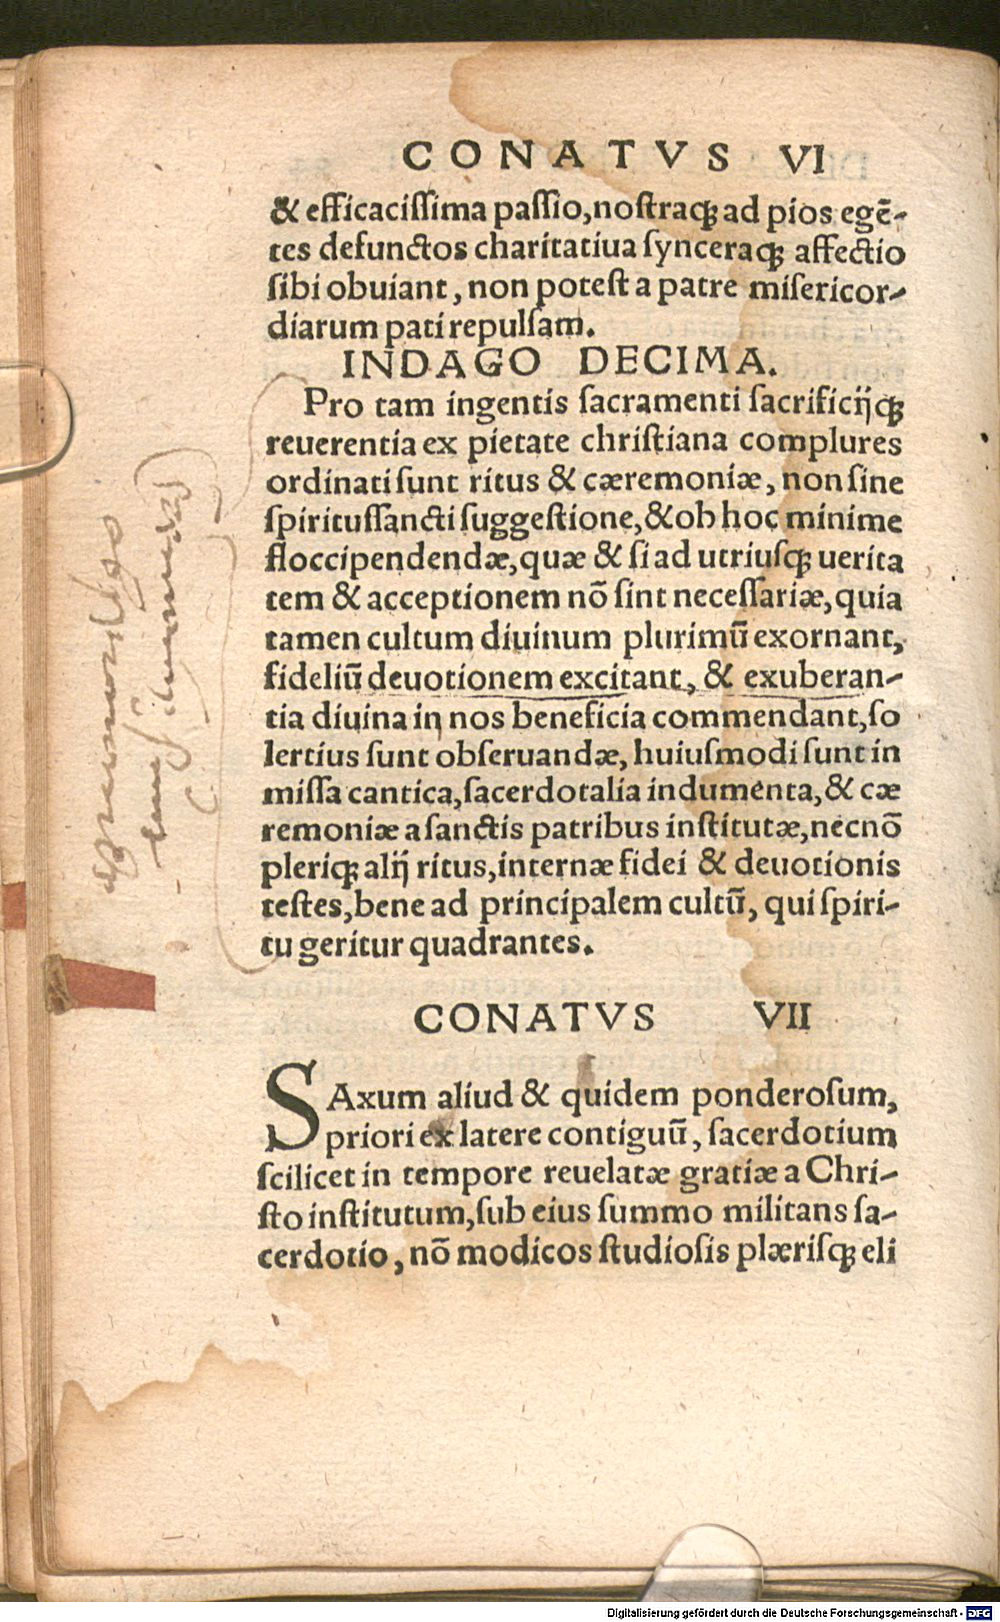 CONATVS VI
& efficaciſſima paſſio,noſtraqꝫ ad pios egē-
tes defunctos charitatiua ſynceraqꝫ affectio
ſibi obuiant, non poteſt a patre miſericor-
diarum pati repulſam.
INDAGO DECIMA.
Pro tam ingentis ſacramenti ſacrificijqꝫ
reuerentia ex pietate chriſtiana complures
ordinati ſunt ritus & cæremoniæ, non ſine
ſpirituſſancti ſuggeſtione,& ob hoc minime
floccipendendæ,quæ & ſi ad utriuſqꝫ uerita
tem & acceptionem nō ſint neceſſariæ,quia
tamen cultum diuinum plurimū exornant,
fideliū deuotionem excitant, & exuberan-
tia diuina in nos beneficia commendant,ſo
lertius ſunt obſeruandæ, huiuſmodi ſunt in
miſſa cantica,ſacerdotalia indumenta,& cæ
remoniæ a ſanctis patribus inſtitutæ,necnō
pleriqꝫ alij ritus,internæ fidei & deuotionis
teſtes,bene ad principalem cultū, qui ſpiri-
tu geritur quadrantes.
CONATVS VII
SAxum aliud & quidem ponderoſum,
priori ex latere contiguū, ſacerdotium
ſcilicet in tempore reuelatæ gratiæ a Chri-
ſto inſtitutum,ſub eius ſummo militans ſa-
cerdotio, nō modicos ſtudioſis plæriſqꝫ eli
Digitalisierung gefördert durch die Deutsche Forschungsgemeinschaft - DFG